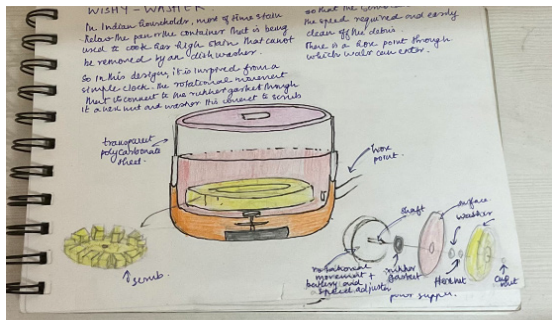 WISHY-WASHER
In Indian households, most of time stain
used to cook has high stain that cannot
be removed by an dishwasher.
So in this design, it is inspired from a
simple clock. the rotational movement
that is connect to the rubber gasket though
it a hex nut and washer it is connect to scrub
so that the
the speed required and easily
clean off the debris.
There is a hose point through
which water can enter.
transparent
polycarbonate
sheet.
hose
point.
scrub.
shaft
surface
washer
rotational
movement +
battery and
speed adjuster
rubber
gasket
Hexnut
Cap
nut
power supply.